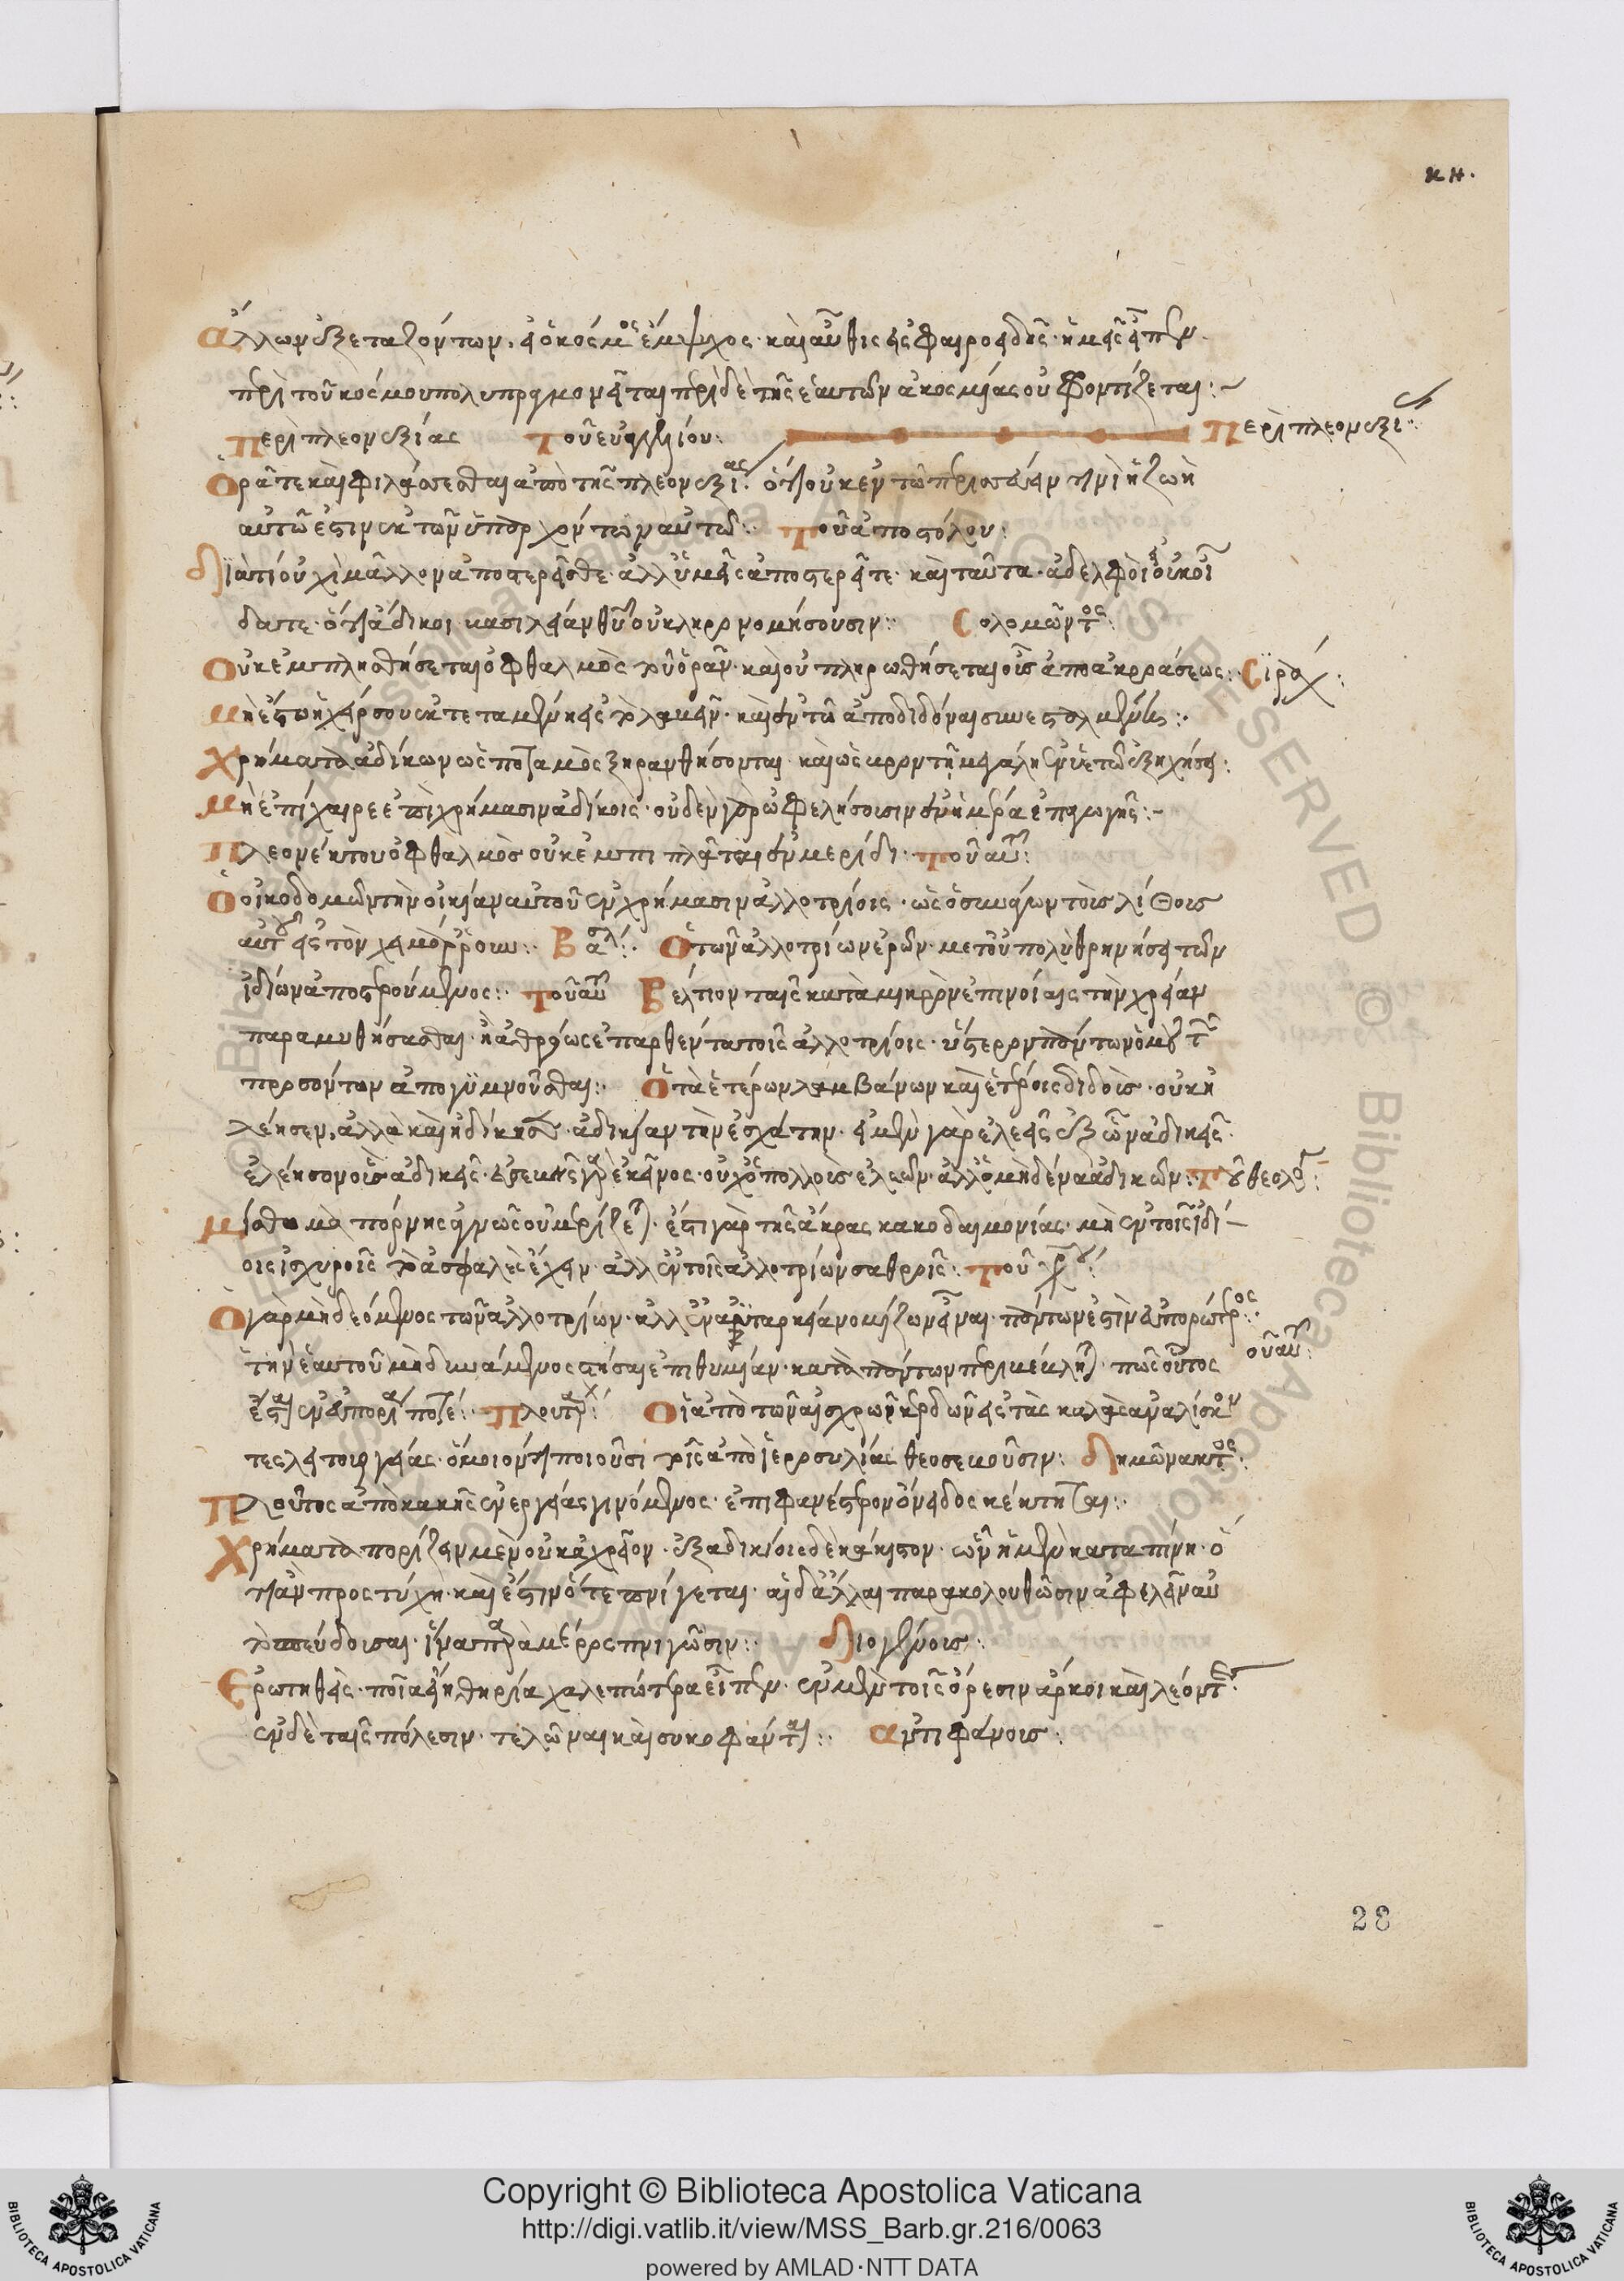 κη.
ἄλλων ἐξεταζόντων, εἰ ὁ κόσμος ἔμψυχος· καὶ αὖθις εἰ σφαιροειδής· ἡμεῖς εἶπεν
περὶ τοῦ κόσμου πολυπραγμονεῖται περὶ δὲ τῆς ἑαυτῶν ἀκοσμίας οὐ φροντίζεται:~
Περὶ πλεονεξίας Τοῦ εὐαγγελίου: Περὶ πλεονεξίας:
Ὁρᾶτε καὶ φυλάσσεσθαι ἀπὸ τῆς πλεονεξίας. ὅτι οὐκ ἐν τῷ περισσεύειν τινὶ ἡ ζωὴ
αὐτῷ ἐστιν ἐκ τῶν ὑπαρχόντων αὐτῷ:. Τοῦ ἀποστόλου:
Διατί οὐχὶ μᾶλλον ἀποστερεῖσθε· ἀλλ' ὑμεῖς ἀποστερεῖτε· καὶ ταῦτα ἀδελφοὶ ἢ οὐκ οἴ
δατε ὅτι ἄδικοι βασιλείαν θυ οὐ κληρονομήσουσιν:. Σολομῶντος:
Οὐκ ἐμπλησθήσεται ὀφθαλμὸς τοῦ ὁρᾶν· καὶ οὐ πληρωθήσεται οὖς ἀπὸ ἀκροάσεως:. Σιράχ:
Μὴ ἔστω ἡ χείρ σου ἐκτεταμένη εἰς τὸ λαμβάνειν· καὶ ἐν τῷ ἀποδιδόναι συνεσταλμένη:.
Χρήματα ἀδίκων ὡς ποταμὸς ξηρανθήσονται καὶ ὡς βροντὴ μεγάλη ἐν ὑετῷ ἐξηχήσει:
Μὴ ἐπίχαιρε ἐπὶ χρήμασιν ἀδίκοις· οὐδὲν γὰρ ὠφελήσουσιν ἐν ἡμέρα ἐπαγωγῆς:-
Πλεονέκτου ὀφθαλμὸς οὐκ ἐμπιπλᾶται ἐν μερίδι. τοῦ αὐτοῦ:
Ὁ οἰκοδομῶν τὴν οἰκίαν αὐτοῦ ἐν χρήμασιν ἀλλοτρίοις· ὡς ὁ συνάγων τοὺς λίθους
αὐτοῦ εἰς τὸν χειμάρρουν:. Βασιλ:. Ὁ τῶν ἀλλοτρίων ἐρῶν· μετ' οὐ πολὺ θρηνήσει τῶν
ἰδίων ἀποστερούμενος:. τοῦ αὐτοῦ Βέλτιον ταῖς κατὰ μικρὸν ἐπινοίαις τὴν χρείαν
παραμυθήσασθαι· ἢ ἀθρόως ἐπαρθέντα τοῖς ἀλλοτρίοις· ὕστερον πάντων ὁμοῦ τῶν
προσόντων ἀπογυμνοῦσθαι:. Ὁ τὰ ἑτέρων λαμβάνων καὶ ἑτέροις διδούς· οὐκ ἠ
λέησεν, ἀλλὰ καὶ ἠδίκησεν ἀδικίαν τὴν ἐσχάτην· εἰ μὲν γὰρ ἐλεεῖς ἐξ ὧν ἀδικεῖς
ἐλέησον οὓς ἀδικεῖς· εὐσεβὴς γὰρ ἐκεῖνος· οὐχ ὁ πολλοὺς ἐλεῶν· ἀλλ' ὁ μηδένα ἀδικῶν:. τοῦ θεολόγου:
Μίσθωμα πόρνης ἁγνῶς οὐ μερίζεται· ἔστι γὰρ τῆς ἄκρας κακοδαιμονίας· μὴ ἐν τοῖς ἰδί-
οις ἰσχυροῖς τὸ ἀσφαλὲς ἔχειν· ἀλλ' ἐν τοῖς ἀλλοτρίων σαθροῖς:. Τοῦ χρ:
Ὁ γὰρ μὴ δεόμενος τῶν ἀλλοτρίων· ἀλλ' ἐν αὐταρκείᾳ νομίζων εἶναι· πάντων ἐστὶν εὐπορώτερος:.
ὁ τὴν ἑαυτοῦ μὴ δυνάμενος στῆσαι ἐπιθυμίαν· κατὰ πάντων περικέκληται· πῶς οὗτος οῦ αὐτοῦ:
ἔσται ἐν εὐπορίᾳ ποτέ:. Πλουτάρχ: Οἱ ἀπὸ τῶν αἰσχρῶν κερδῶν εἰς τὰς καλὰς ἀναλίσκον
τες λειτουργίας· ὅμοιόν τι ποιοῦσι τοῖς ἀπὸ ἱεροσυλίας θεοσεβοῦσιν: Δημώνακτος:
Πλοῦτος ἀπὸ κακῆς ἐνεργείας γινόμενος· ἐπιφανέστερον ὄνειδος κέκτηται:.
Χρήματα πορίζειν μὲν οὐκ ἀχρεῖον· ἐξ ἀδικίης δὲ κάκιστον· ὧν ἡ μὲν καταπίνῃ· ὅ
τι ἂν προστύχῃ· καὶ ἔστιν ὅτε πνίγεται· αἱ δ' ἄλλαι παρακολουθῶσιν ἀφελεῖν αὐ
τὸ σπεύδουσαι· ἵνα μέρος πνιγῶσιν:. Διογένους:
Ἐρωτηθεὶς· ποῖα εἴη θηρία χαλεπώτερα εἶπεν· ἐν μὲν τοῖς ὄρεσιν ἄρκοι καὶ λέοντες
ἐν δὲ ταῖς πόλεσιν· τελῶναι καὶ συκοφάνται:. Ἀντιφάνους:
28
Copyright © Biblioteca Apostolica Vaticana
http://digi.vatlib.it/view/MSS_Barb.gr.216/0063
powered by AMLAD·NTT DATA
BIBLIOTECA APOSTOLICA VATICANA
BIBLIOTECA APOSTOLICA VATICANA